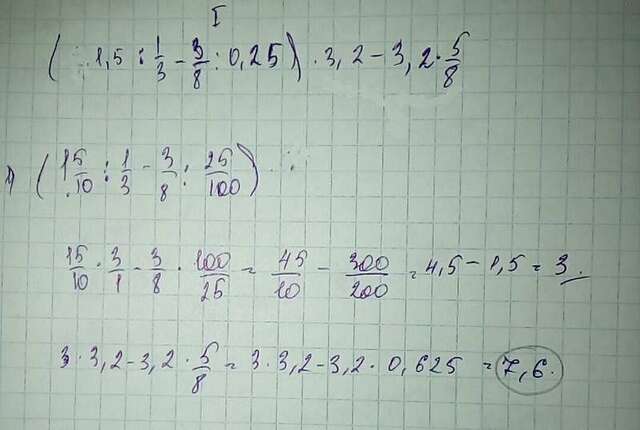 I
(1,5 : 1/3 - 3/8 : 0,25) · 3,2 - 3,2 · 5/8
1) (15/10 : 1/3 - 3/8 : 25/100)
15/10 · 3/1 - 3/8 · 100/25 = 45/10 - 300/200 = 4,5 - 1,5 = 3.
3 · 3,2 - 3,2 · 5/8 = 3 · 3,2 - 3,2 · 0,625 = 7,6.